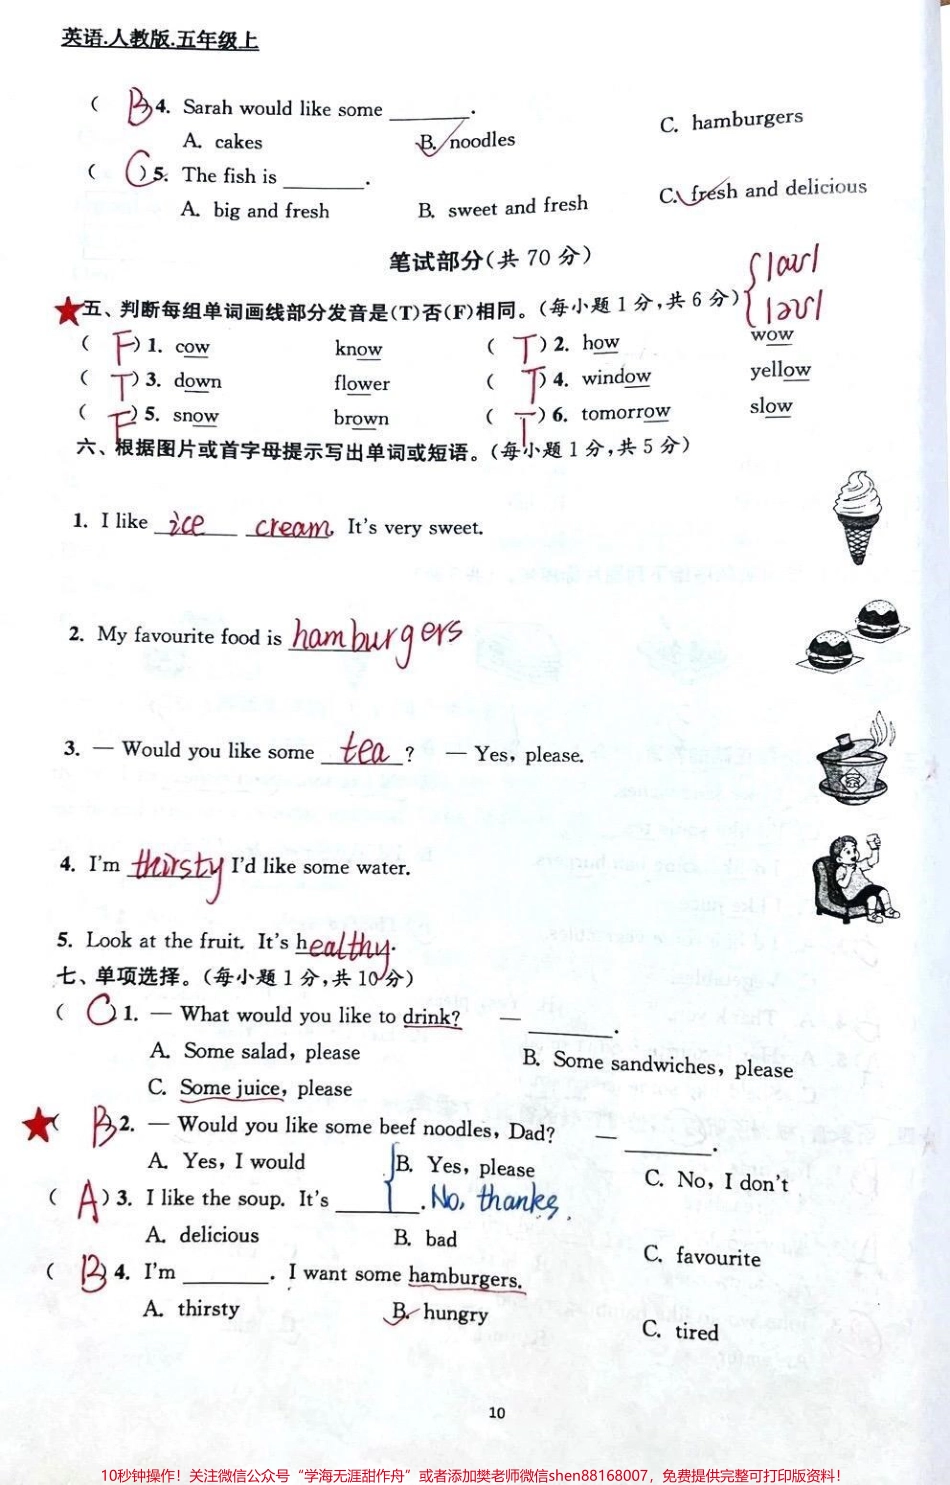 英语.人教版.五年级上
( B )4. Sarah would like some ________.
A. cakes B. noodles C. hamburgers
( C )5. The fish is ________.
A. big and fresh B. sweet and fresh C. fresh and delicious
笔试部分(共 70 分)
{ /aʊ/
/əʊ/
★五、判断每组单词画线部分发音是(T)否(F)相同。(每小题 1 分,共 6 分)
( F )1. cow know ( T )2. how wow
( T )3. down flower ( T )4. window yellow
( F )5. snow brown ( T )6. tomorrow slow
六、根据图片或首字母提示写出单词或短语。(每小题 1 分,共 5 分)
1. I like ice cream. It's very sweet.
2. My favourite food is hamburgers
3. — Would you like some tea? — Yes, please.
4. I'm thirsty I'd like some water.
5. Look at the fruit. It's healthy.
七、单项选择。(每小题 1 分,共 10 分)
( C )1. — What would you like to drink? — ________.
A. Some salad, please B. Some sandwiches, please
C. Some juice, please
★( B )2. — Would you like some beef noodles, Dad? — ________.
A. Yes, I would B. Yes, please C. No, I don't
( A )3. I like the soup. It's ________. No, thanks.
A. delicious B. bad C. favourite
( B )4. I'm ________. I want some hamburgers.
A. thirsty B. hungry C. tired
10
10秒钟操作!关注微信公众号“学海无涯甜作舟”或者添加樊老师微信shen88168007,免费提供完整可打印版资料!